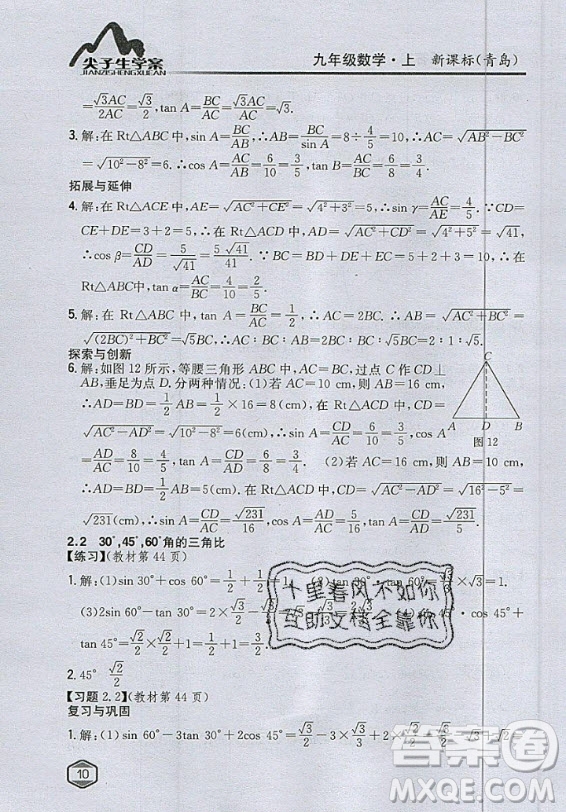 尖子生学案
JIANZISHENGXUEAN
九年级数学·上 新课标(青岛)
=√3AC/2AC=√3/2,tan A=BC/AC=√3AC/AC=√3.
3.解:在Rt△ABC中,sin A=BC/AB,∴AB=BC/sin A=8÷4/5=10,∴AC=√(AB²-BC²)
=√(10²-8²)=6.∴cos A=AC/AB=6/10=3/5,tan A=BC/AC=8/6=4/3.
拓展与延伸
4.解:在Rt△ACE中,AE=√(AC²+CE²)=√(4²+3²)=5,∴sin γ=AC/AE=4/5.∵CD=
CE+DE=3+2=5,∴在Rt△ACD中,AD=√(AC²+CD²)=√(4²+5²)=√41,
∴cos β=CD/AD=5/√41=5√41/41.∵BC=BD+CD=5+5=10,∴在Rt△ABC
中,tan α=AC/BC=4/10=2/5.
5.解:在Rt△ABC中,tan A=BC/AC=1/2,∴AC=2BC.∴AB=√(AC²+BC²)
=√((2BC)²+BC²)=√5BC.∴AC:BC:AB=2BC:BC:√5BC=2:1:√5.
探索与创新
6.解:如图12所示,等腰三角形ABC中,过点C作CD⊥
AB,垂足为点D.分两种情况:(1)若AC=10 cm,
∴AD=BD=1/2AB=1/2×16=8(cm),∴CD=
√(AC²-AD²)=√(10²-8²)=6(cm),∴sin A=CD/AC
=6/10=3/5,cos A=AD/AC=8/10=4/5,tan A=CD/AD=6/8=3/4.(2)若AC=16 cm,
∴AD=BD=1/2AB=1/2×10=5(cm).在Rt△ACD中,CD=√(AC²-AD²)=√(16²-5²)=
√231(cm),∴sin A=CD/AC=√231/16,cos A=AD/AC=5/16,tan A=CD/AD=√231/5.
C
A D B
图12
2.2 30°,45°,60°角的三角比
【练习】(教材第44页)
1.解:(1)sin 30°+cos 60°=1/2+1/2=1.
(3)2sin 30°+2cos 60°+
cos 45°+
tan 45°=
2.45° √2/2
【习题2.2】(教材第44页)
复习与巩固
1.解:(1)sin 60°-3tan 30°+2cos 30°=√3/2-3×
10
十里春风不如你
互助文档全靠你
答案圈
MXQE.COM